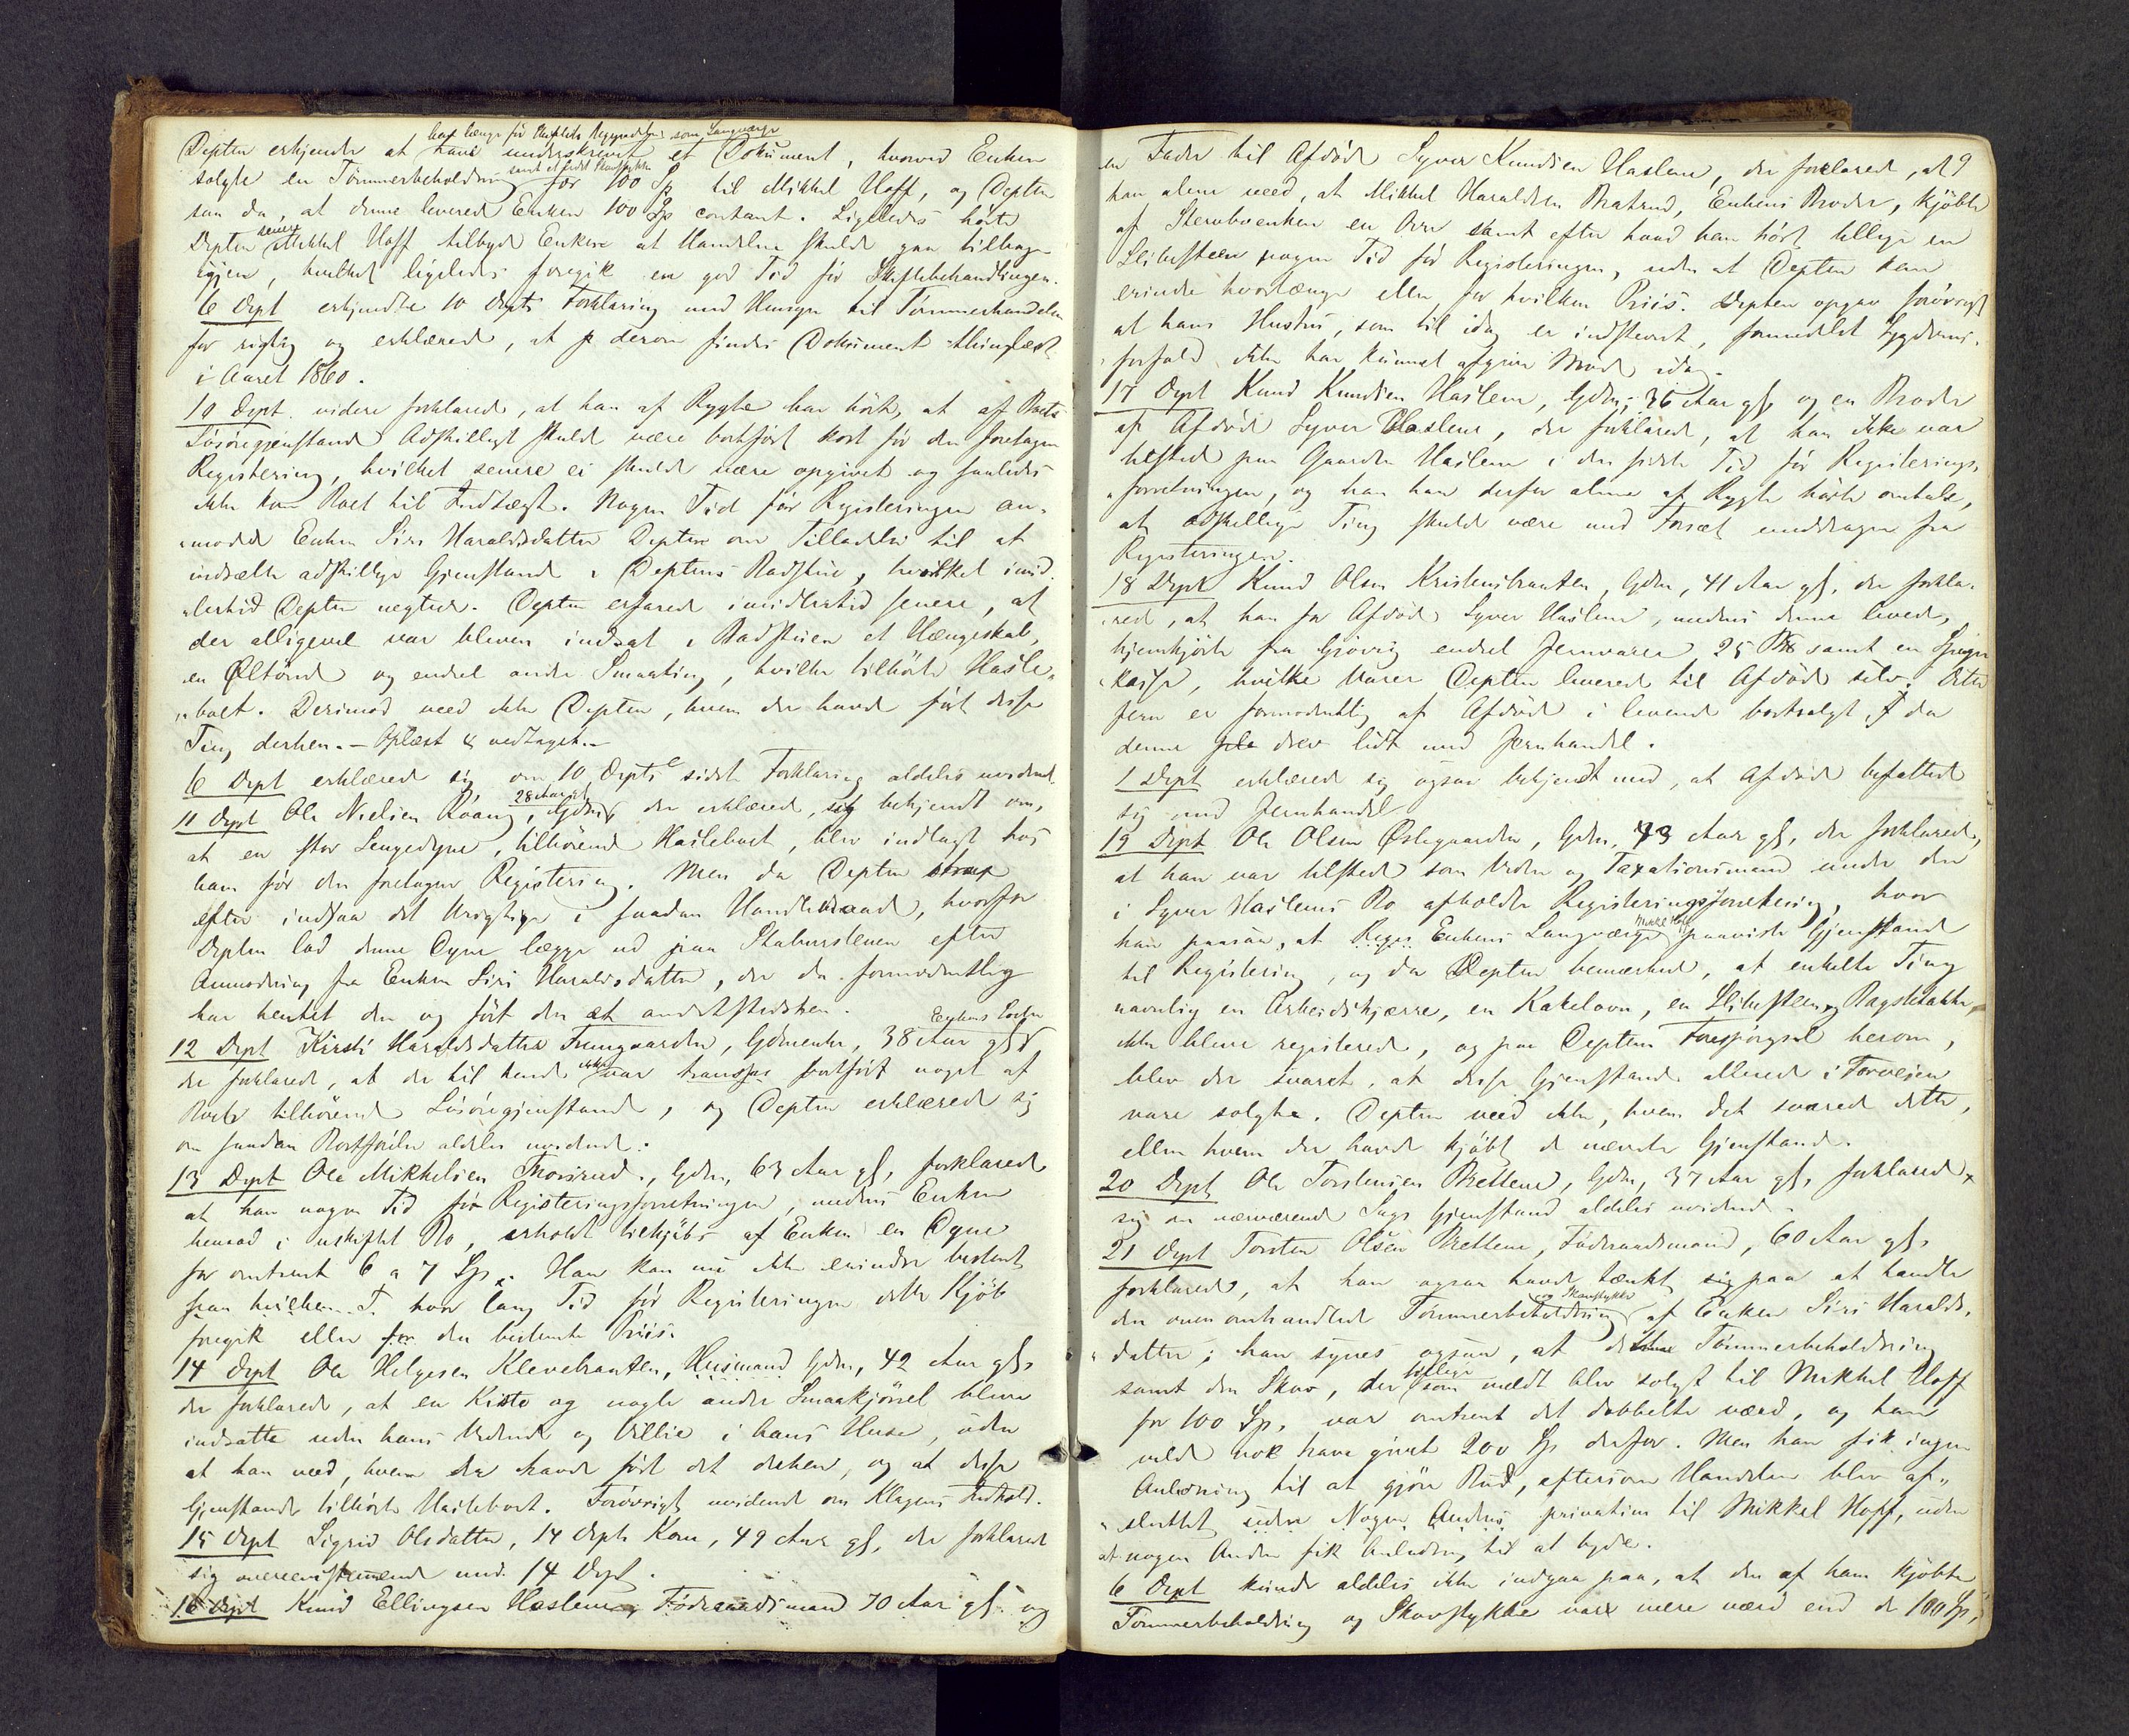 har længe før Skiftets Begyndelse som Laugværge
Depten erkjender at have underskrevet et Dokument, hvorved Enken
samt et Sted Skovstykke
solgte en Tømmerbeholdning for 100 Sp til Mikkel Hoff, og Depten
saa da, at denne leverede Enken 100 Sp contant. Ligeledes hørte
senere
Depten Mikkel Hoff tilbyde Enken at Handelen skulde gaa tilbage
igjen, hvilket ligeledes foregik en god Tid før Skiftebehandlingen.
6 Dept erkjendte 10 Depts Forklaring med Hensyn til Tømmerhandelen
for rigtig og erklærede, at derom findes Dokument thinglæst
i Aaret 1860.
10 Dept. videre forklarede, at han af Rygte har hørt, at af Boets
Løsøregjenstande Adskilligt skulde være bortført kort før den foretagne
Registering, hvilket senere ei skulde være opgivet og saaledes
ikke kom Boet til Indtægt. Nogen Tid før Registeringen an-
"modede Enken Siri Haraldsdatter Depten om Tilladelse til at
indsætte adskillige Gjenstande i Deptens Badstue, hvilket imid-
"lertid Depten negtede. Depten erfarede imidlertid senere, at
der alligevel var bleven indsat i Badstuen et Hængeskab,
en Øltønde og endel andre Smaating, hvilke tilhørte Hasle-
"boet. Derimod veed ikke Depten, hvem der havde ført disse
Ting derhen. – Oplæst & vedtaget. –
6 Dept erklærede sig om 10 Depts sidste Forklaring aldeles uvidende.
28 Aar gl.
11 Dept Ole Nielsen Roang, Gdm, der erklærede, sig bekjendt om,
at en stor Sengedyne, tilhørende Hasleboet, blev indlagt hos
ham før den foretagne Registering. Men da Depten strax
efter indsaa det Urigtige i saadan Handlemaade, hvorfor
Depten lod denne Dyne lægge ud paa Stabursleven efter
Anmodning fra Enken Siri Haralsdatter, der da formodentlig
har hentet den og ført den et andetstedshen.
Enkens Søster
12 Dept Kirsti Haraldsdatter Fremgaarden, Gdmenke, 38 Aar gl,
ikke
der forklarede, at der til hende var bortført noget af
Boets tilhørende Løsøregjenstande, og Depten erklærede sig
om saadan Bortførelse aldeles uvidende.
13 Dept Ole Mikkelsen Thorsrud, Gdm, 63 Aar gl, forklarede
at han nogen Tid før Registeringsforretningen, medens Enken
hensad i uskiftet Bo, erholdt tilkjøbs af Enken en Dyne
for omtrent 6 a 7 Sp. Han kan nu ikke erindre bestemt
hvor lang Tid før Registeringen dette Kjøb
foregik eller den bestemte Priis.
14 Dept Ole Helgesen Klevebraaten, Husmand Gdm, 42 Aar gl,
der forklarede, at en Kiste og nogle andre Smaakjørsel bleve
indsatte uden hans Vidende og Villie i hans Huse, uden
at han veed, hvem der havde ført det derhen, og at disse
Gjenstande tilhørte Hasleboet. Forøvrigt uvidende om Klagens Indhold.
15 Dept Sigrid Olsdatter, 14 Depts Kone, 49 Aar gl, der forklarede
sig overeensstemmende med 14 Dept.
16 Dept Knud Ellingsen Haslene, Føderaadsmand 70 Aar gl. og
9
en Fader til Afdøde Syver Knudsen Haslene, der forklarede, at
han alene veed, at Mikkel Haraldsen Bratrud, Enkens Broder, kjøbte
af Stervboenken en Ovn samt efter hvad han hørt tillige en
Slibesteen nogen Tid før Registeringen, uden at Depten kan
erindre hvorlænge eller for hvilken Priis. Depten opgav forøvrigt
at hans Hustru, som til idag er indstevnt, formedelst Sygdoms-
forfald ikke har kunnet afgive Møde idag.
17 Dept Knud Knudsen Haslene, Gdm, 36 Aar gl, og en Broder
af Afdøde Syver Haslene, der forklarede, at han ikke var
tilsted paa Gaarden Haslene i den sidste Tid før Registerings-
"forretningen, og han har derfor alene af Rygte hørt omtale,
at adskillige Ting skulde være med Forsæt unddragen fra
Registeringen.
18 Dept Knud Olsen Kristensbraaten, Gdm, 41 Aar gl, der forkla-
"rede, at han for Afdøde Syver Haslene, medens denne levede,
hjemkjørte fra Gjøvig endel Jernvarer, samt en Spiger-
"kasse, hvilke Varer Depten leverede til Afdøde selv. Dette
Jern er formodentlig af Afdøde i levende bortsolgt, da
denne drev lidt med Jernhandel.
1 Dept erklærede sig ogsaa bekjendt med, at Afdøde befattede
sig med Jernhandel
19 Dept Ole Olsen Østegaarden, Gdm, 43 Aar gl, der forklarede,
at han var tilstede som Vidne og Taxationsmand under den
i Syver Haslens Bo afholdte Registeringsforretning, hvor
Mikkel Hoff
han paasaa, at Enkens Laugværge paaviste Gjenstande
til Registering, og da Depten bemærkede, at enkelte Ting
navnlig en Arbeidskjærre, en Kakelovn, en Slibesteen, Bagstetakke,
ikke bleve registerede, og paa Deptens Forespørgsel herom,
blev der svaret, at disse Gjenstande allerede i Forveien
vare solgte. Depten veed ikke, hvem det svarede dette,
eller hvem der havde kjøbt de nævnte Gjenstande.
20 Dept Ole Torstensen Brettene, Gdm, 37 Aar gl, forklarede
sig om nærværende Sags Gjenstand aldeles uvidende.
21 Dept Torsten Olsen Brettene, Føderaadsmand, 60 Aar gl,
forklarede, at han ogsaa havde tænkt sig paa at handle
og Skovstykke
den ovenomhandlede Tømmerbeholdning af Enken Siri Haralds-
"datter; han synes ogsaa, at denne Tømmerbeholdning
tillige
samt den Skov, der som meldt blev solgt til Mikkel Hoff
for 100 Sp, var omtrent det dobbelte værd, og han
vilde nok have givet 200 Sp derfor. Men han fik ingen
Anledning til at gjøre Bud, eftersom Handelen blev af-
"sluttet uden Nogen Andens privatim til Mikkel Hoff, uden
at nogen Anden fik Anledning til at byde.
6 Dept kunde aldeles ikke indgaa paa, at den af ham kjøbte
Tømmerbeholdning og Skovstykke vare mere værd end de 100 Sp,